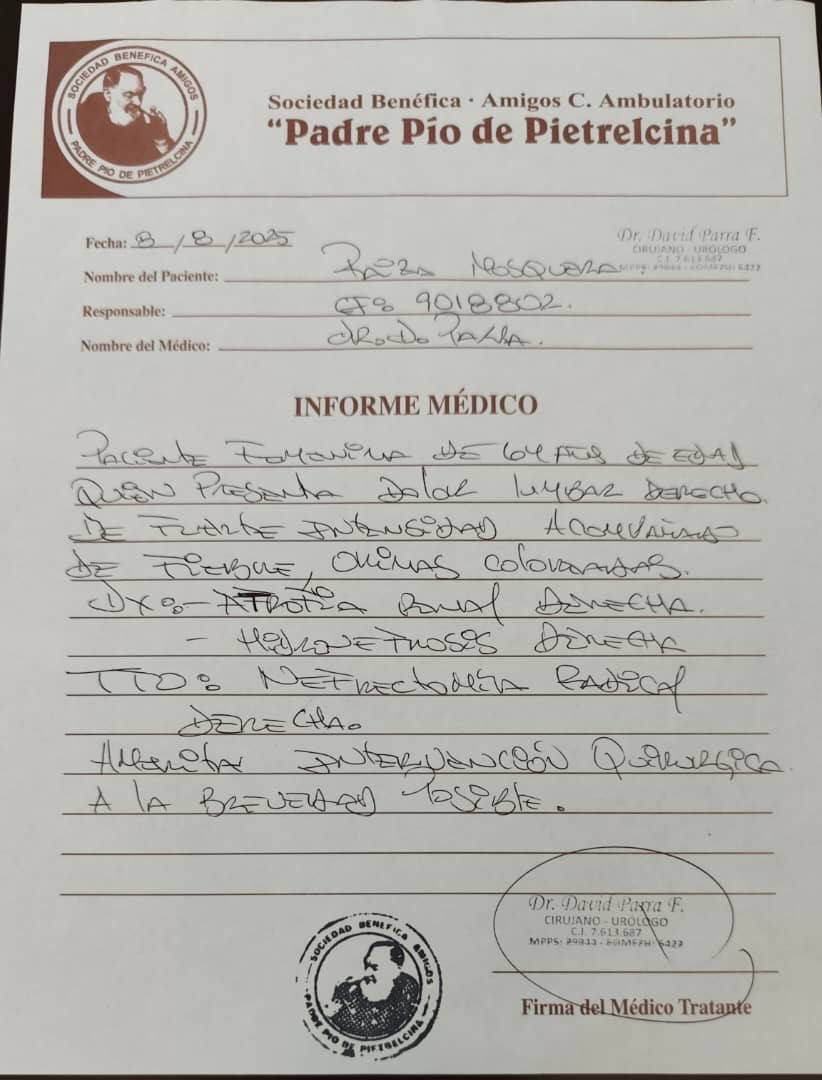 SOCIEDAD BENEFICA AMIGOS
PADRE PIO DE PIETRELCINA
Sociedad Benéfica · Amigos C. Ambulatorio
“Padre Pío de Pietrelcina”
Dr. David Parra F.
CIRUJANO - UROLOGO
C.I. 7.613.687
Fecha: 8/8/2025
Nombre del Paciente: Raiza Mosquera
Responsable: CI: 9018802.
Nombre del Médico: Dr. D. Parra.
INFORME MÉDICO
Paciente Femenina de 64 años de edad
Quien Presenta Dolor lumbar Derecho
de Fuerte Intensidad Acompañado
de Fiebre, Orinas Coloreadas.
Dx: - Atrofia Renal Derecha.
- Hidronefrosis Derecha
TTO: Nefrectomía Radical
Derecha.
Amerita Intervención Quirurgica
A la Brevedad Posible.
Dr. David Parra F.
CIRUJANO - UROLOGO
C.I. 7.613.687
Firma del Médico Tratante
SOCIEDAD BENEFICA AMIGOS
PADRE PIO DE PIETRELCINA